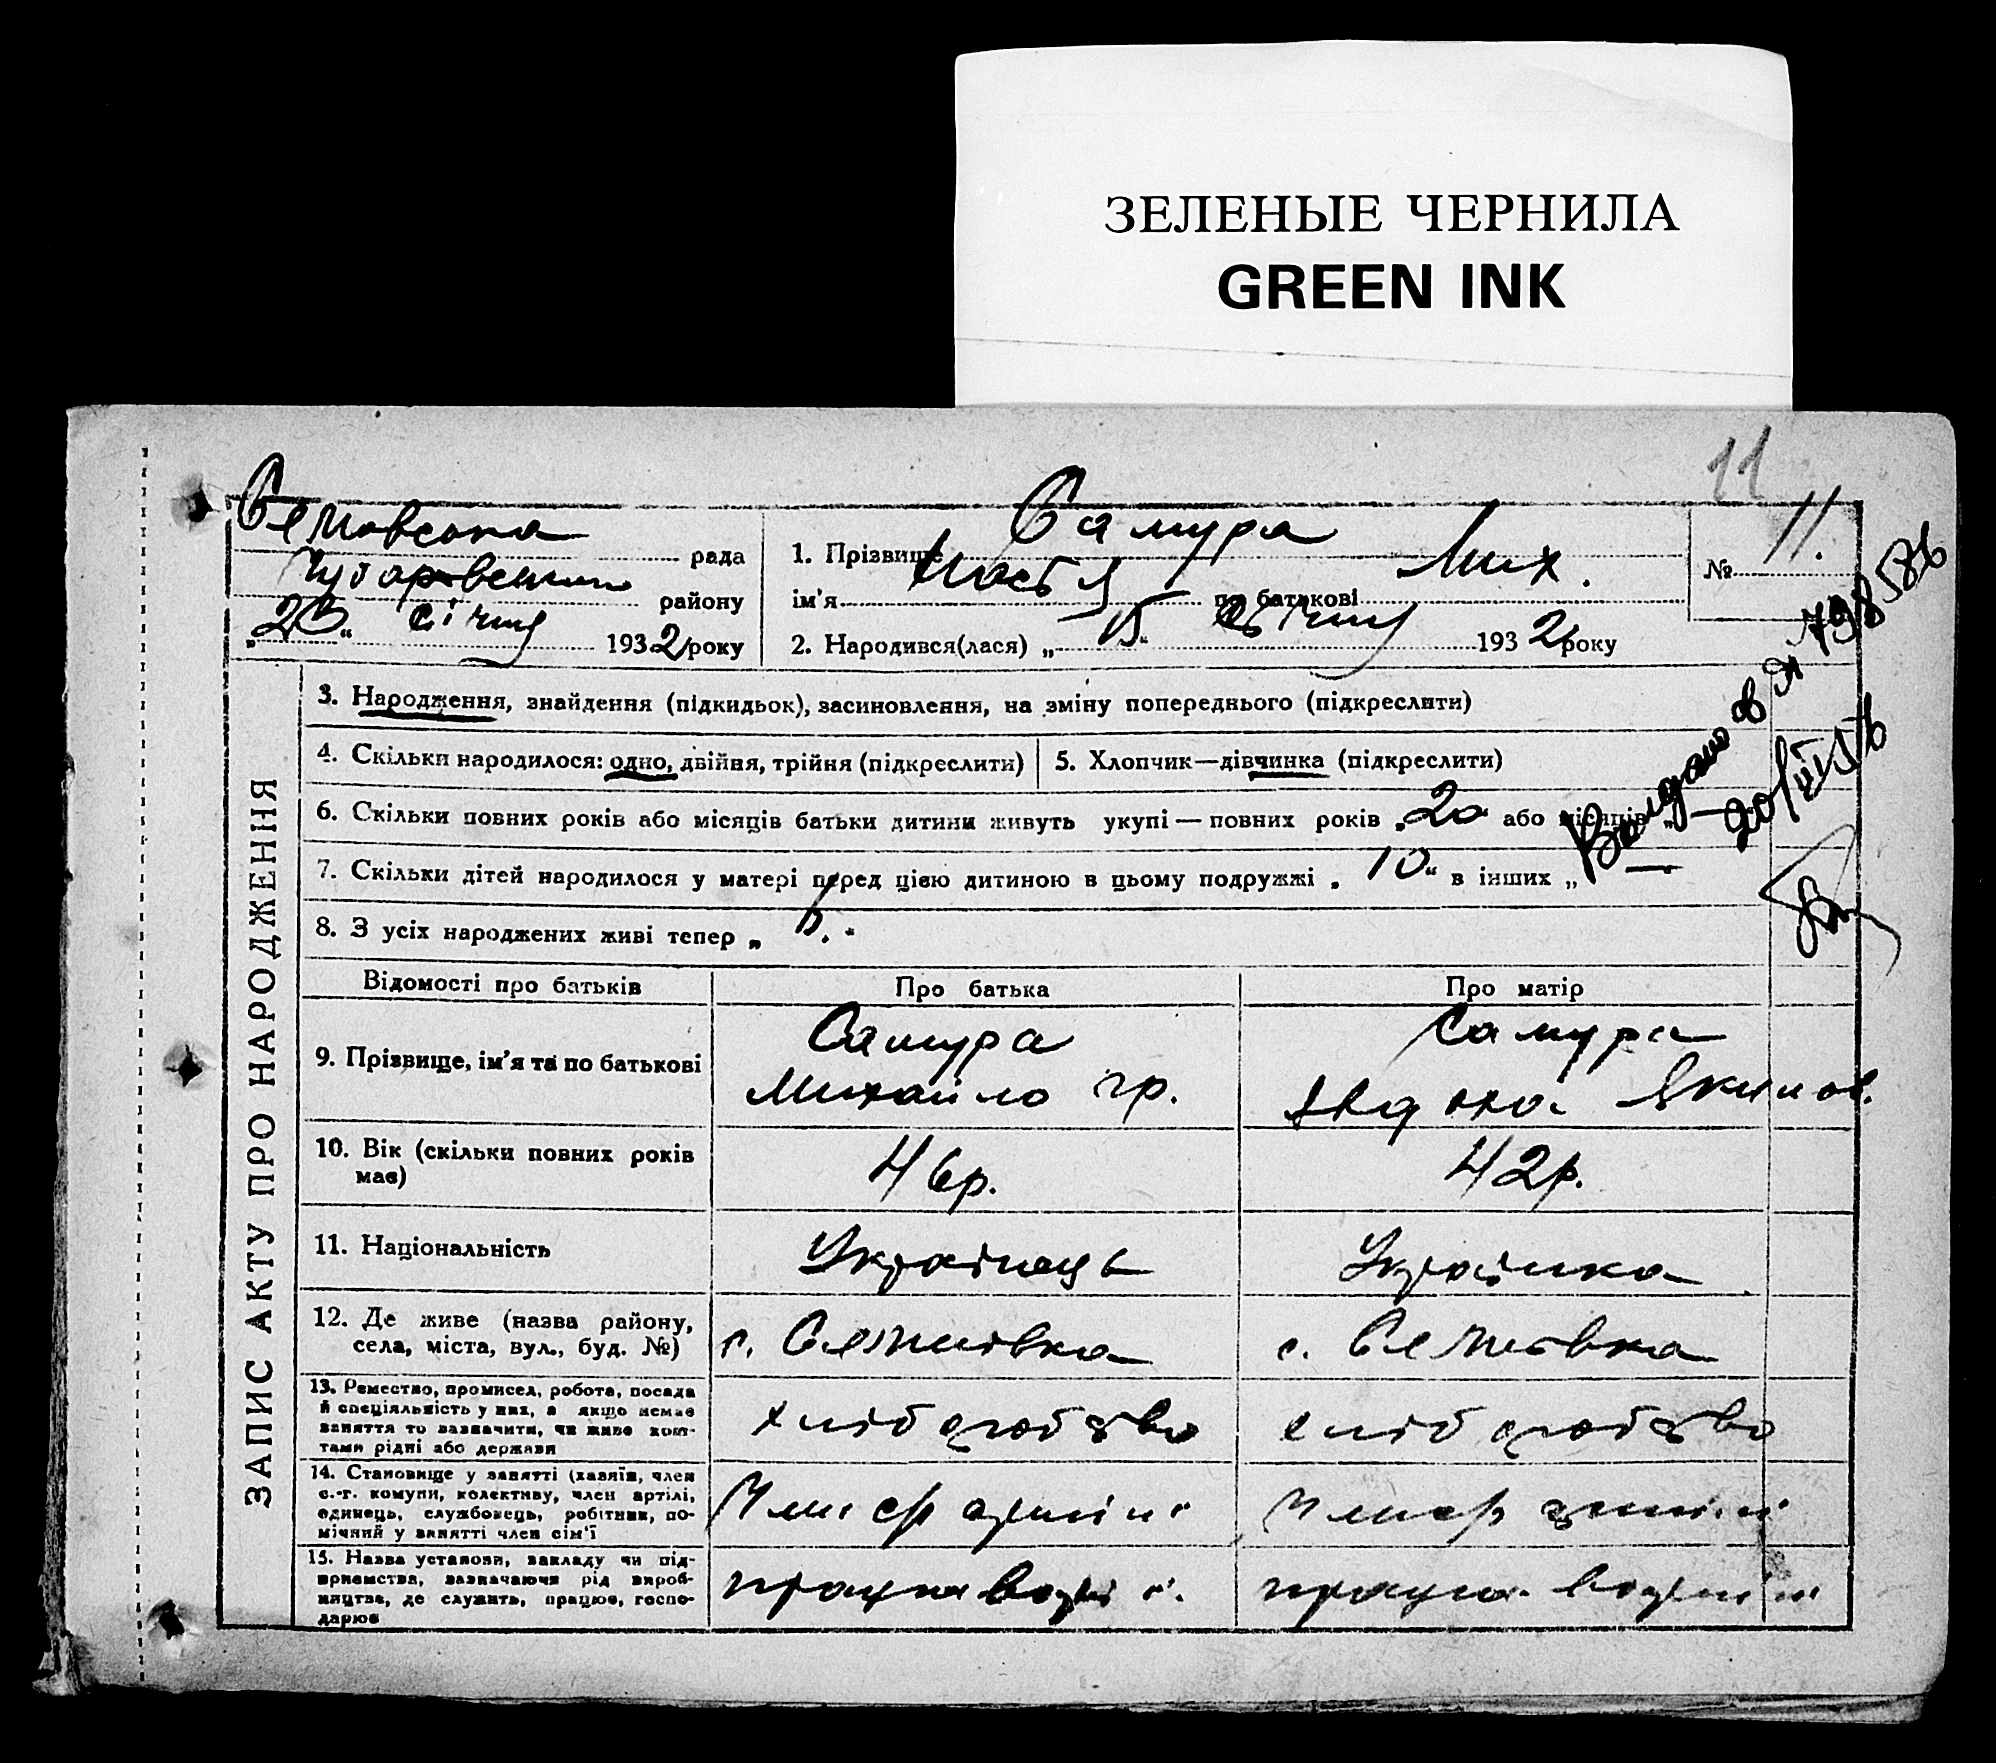 ЗЕЛЕНЫЕ ЧЕРНИЛА
GREEN INK
11
рада
району
„23“ січня 1932 року
1. Прізвище Самура
ім'я Настя по батькові Мих.
2. Народився(лася) „15“ січня 1932 року
№ 11.
ЗАПИС АКТУ ПРО НАРОДЖЕННЯ
3. Народження, знайдення (підкидьок), засиновлення, на зміну попереднього (підкреслити)
4. Скільки народилося: одно, двійня, трійня (підкреслити)
5. Хлопчик—дівчинка (підкреслити)
6. Скільки повних років або місяців батьки дитини живуть укупі — повних років „20 або місяців „ —
7. Скільки дітей народилося у матері перед цією дитиною в цьому подружжі „10“ в інших „ —
8. З усіх народжених живі тепер „
Видано
Відомості про батьків
Про батька
Про матір
9. Прізвище, ім'я та по батькові
Самура
Михайло Гр.
Самура
Явдоха Якимов.
10. Вік (скільки повних років
має)
46р.
42р.
11. Національність
Українець
Українка
12. Де живе (назва району,
села, міста, вул., буд. №)
с.
с.
13. Ремество, промисел, робота, посада
й спеціяльність у них, а якщо немає
заняття то зазначити, чи живе кош-
тами рідні або держави
хліборобство
хліборобство
14. Становище у занятті (хазяїн, член
с.-г. комуни, колективу, член артілі,
одинець, службовець, робітник, по-
мічний у занятті член сім'ї
15. Назва установи, закладу чи під-
приємства, зазначаючи рід вироб-
ництва, де служить, працює, госпо-
дарює